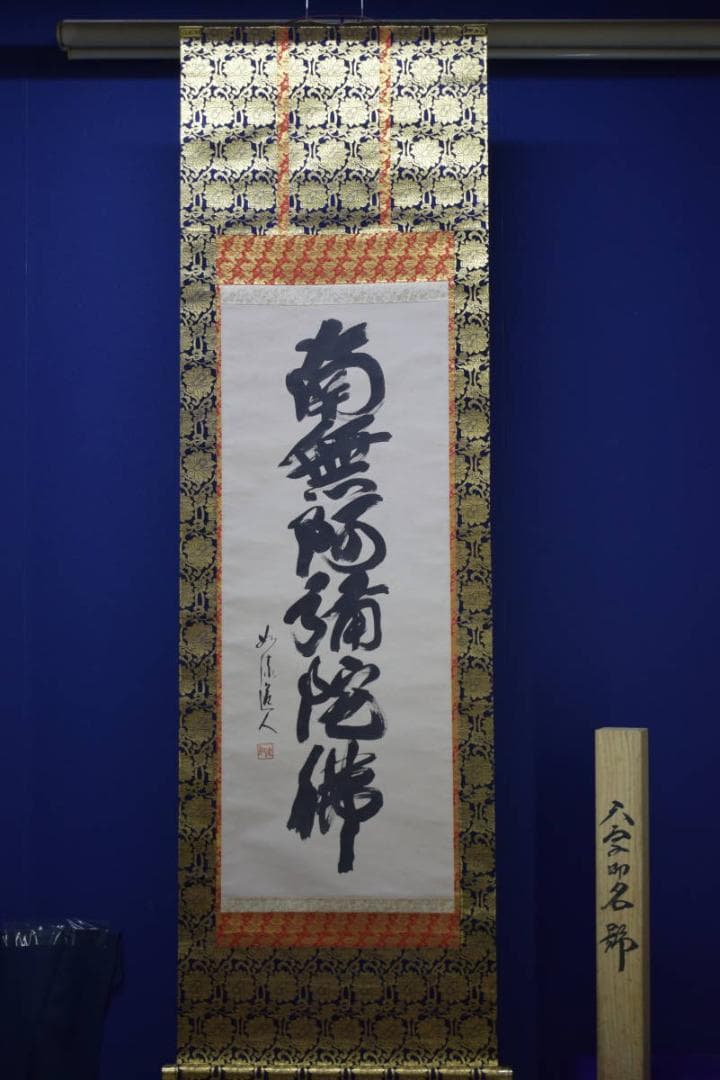 南無阿彌陀佛
道人
六字御名號